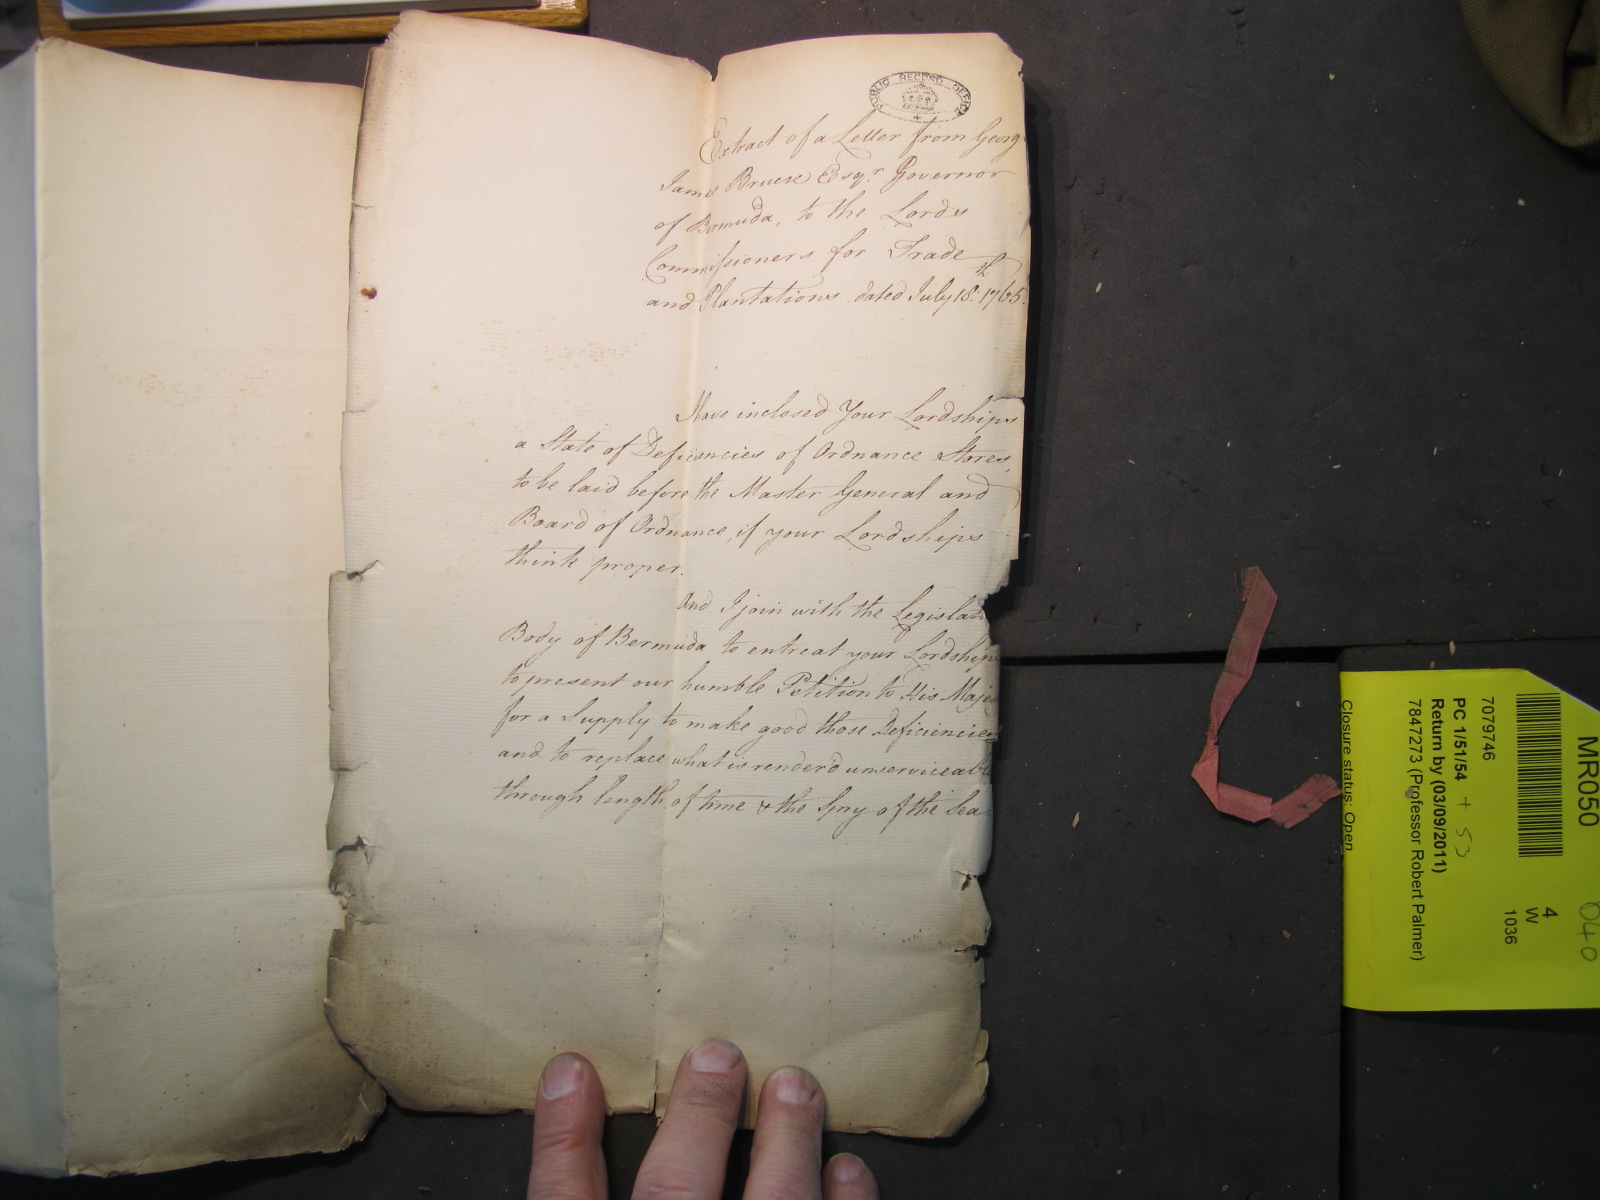 PUBLIC RECORD OFFICE
Extract of a Letter from Georg
James Bruere Esqr. Governor
of Bermuda, to the Lords
Commissioners for Trade
and Plantations dated July 18.th 1765.
Have inclosed Your Lordships
a State of Deficiencies of Ordnance Stores,
to be laid before the Master General and
Board of Ordnance, if your Lordships
think proper.
And I join with the Legislati
Body of Bermuda to entreat your Lordship
to present our humble Petition to His Majes
for a Supply to make good those Deficiencies
and to replace what is render'd unserviceabl
through length of time & the Spry of the Sea
MR050
040
4
W
1036
7079746
PC 1/51/54 + 53
Return by (03/09/2011)
7847273 (Professor Robert Palmer)
Closure status: Open